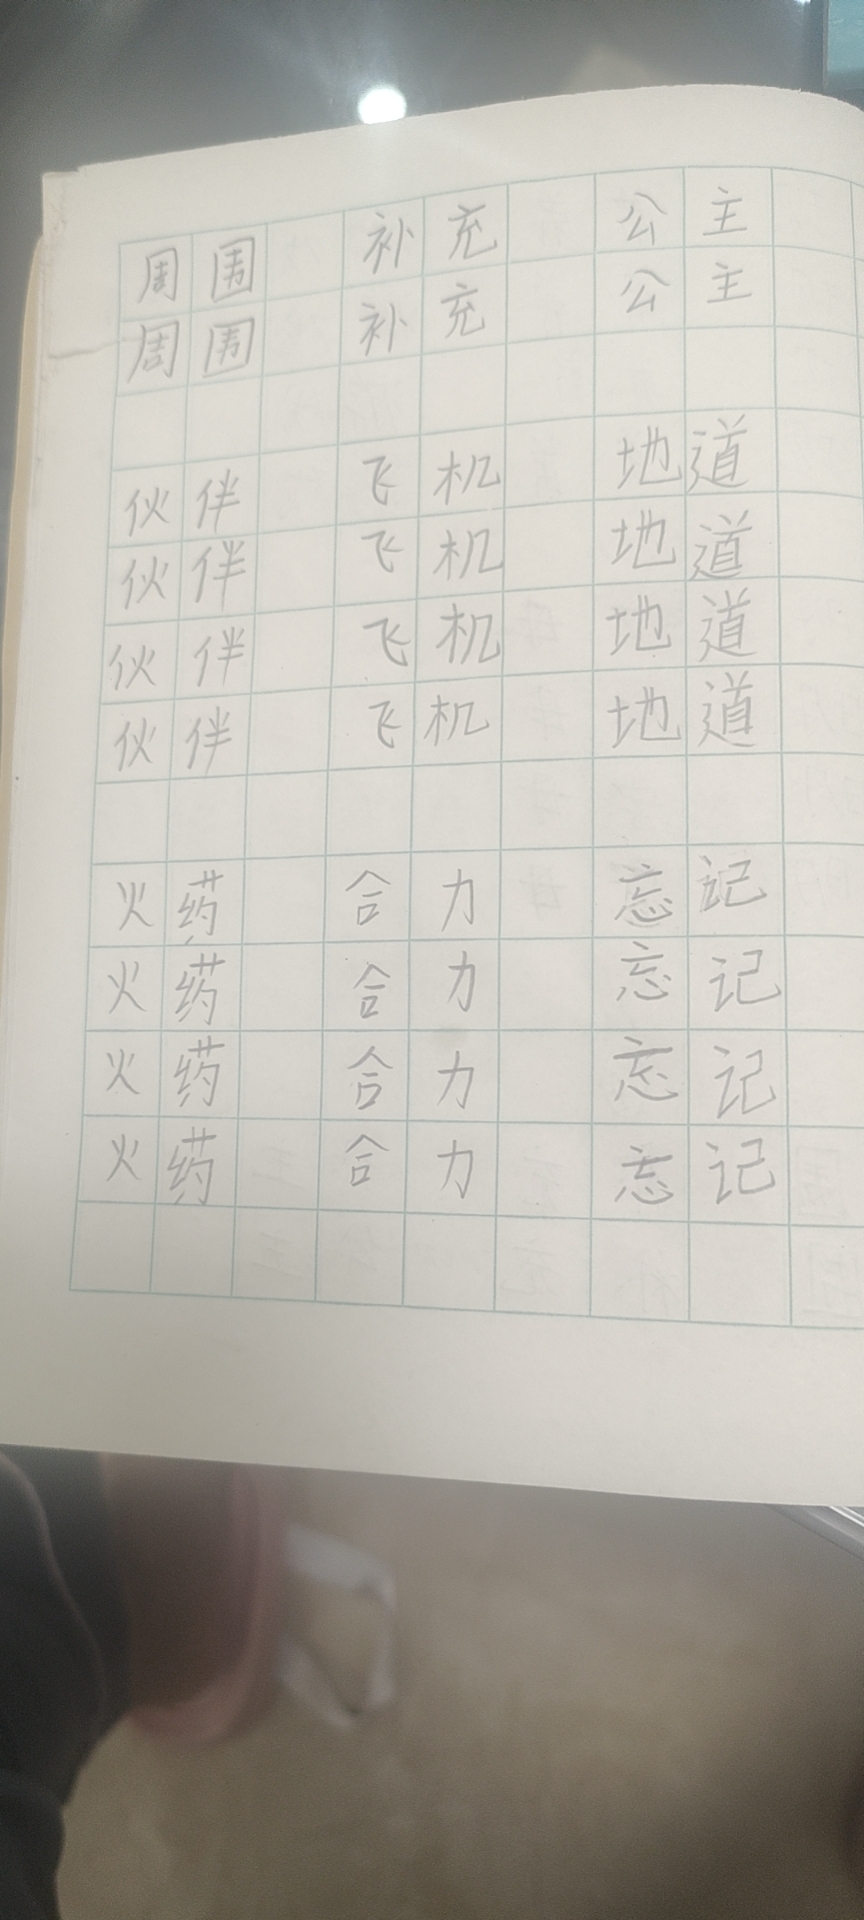 周围 补充 公主
周围 补充 公主
伙伴 飞机 地道
伙伴 飞机 地道
伙伴 飞机 地道
伙伴 飞机 地道
火药 合力 忘记
火药 合力 忘记
火药 合力 忘记
火药 合力 忘记